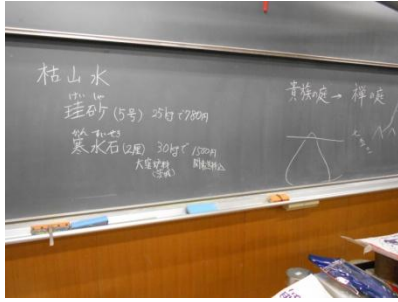 枯山水
けい しゃ
珪砂 (5号) 25kgで780円
かんすいせき
寒水石 (2厘) 30kgで 1500円
貴族の庭 → 禅の庭